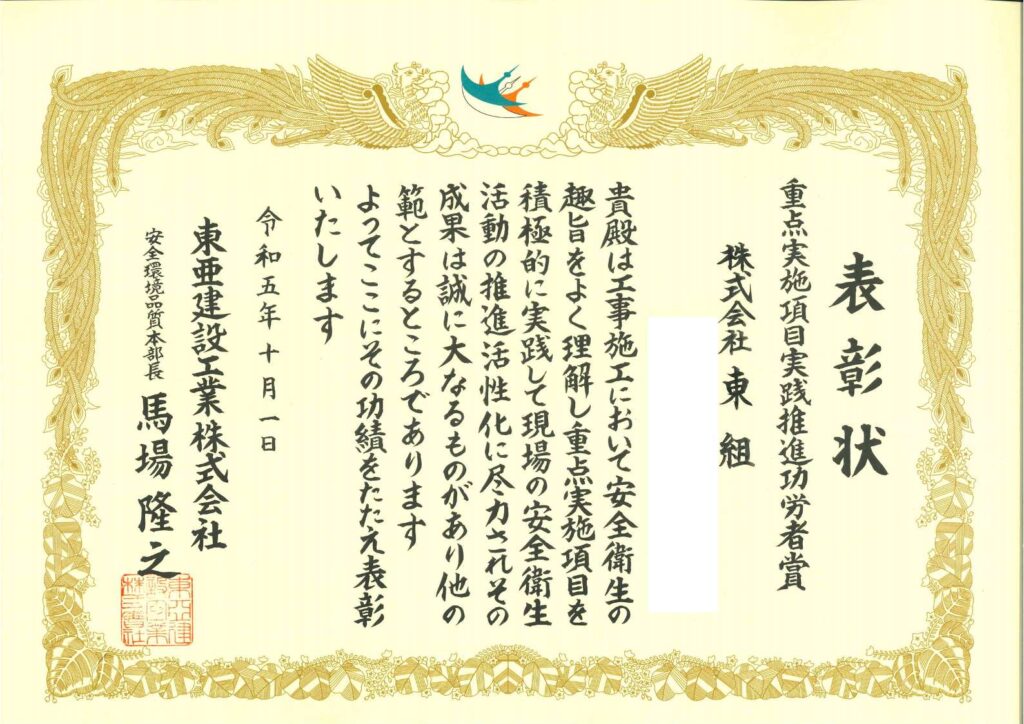 表彰状
重点実施項目実践推進功労者賞
株式会社 東組
貴殿は工事施工において安全衛生の
趣旨をよく理解し重点実施項目を
積極的に実践して現場の安全衛生
活動の推進活性化に尽力されその
成果は誠に大なるものがあり他の
範とするところであります
よってここにその功績をたたえ表彰
いたします
令和五年十月一日
東亜建設工業株式会社
安全環境品質本部長 馬場隆之